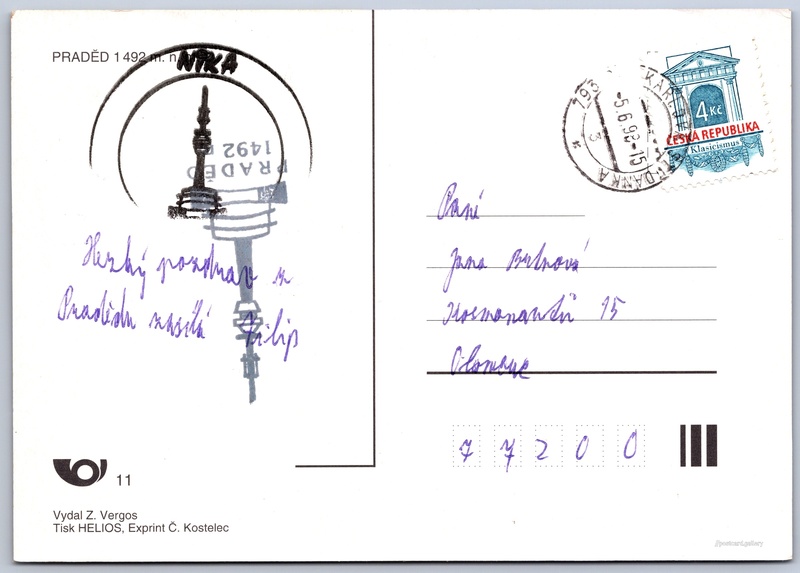 PRADĚD 1 492 m. n.
NIKA
PRADĚD
1492
Hezký pozdrav z
Pradědu zasílá Filip
11
Vydal Z. Vergos
Tisk HELIOS, Exprint Č. Kostelec
4 Kč
ČESKA REPUBLIKA
Klasicismus
793
-5.6.98-15
3
Paní
Jana
Kosmonautů 15
Olomouc
77200